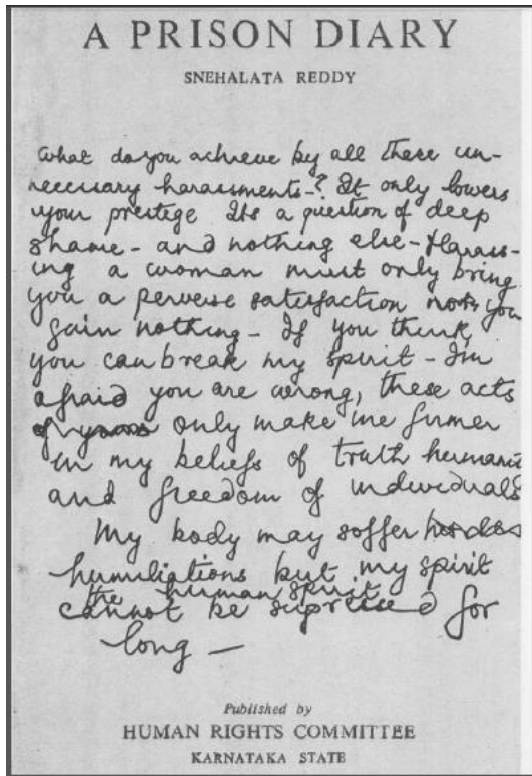 A PRISON DIARY
SNEHALATA REDDY
What do you achieve by all these un-
necessary harassments-? It only lowers
your prestige Its a question of deep
shame - and nothing else - Harass-
ing a woman must only bring
you a perverse satisfaction you
gain nothing - If you think
you can break my spirit - I'm
afraid you are wrong, these acts
only make me firmer
in my beliefs of truth
and freedom of individuals
My body may soffer
humiliations but my spirit
the human spirit
cannot be for
long -
Published by
HUMAN RIGHTS COMMITTEE
KARNATAKA STATE